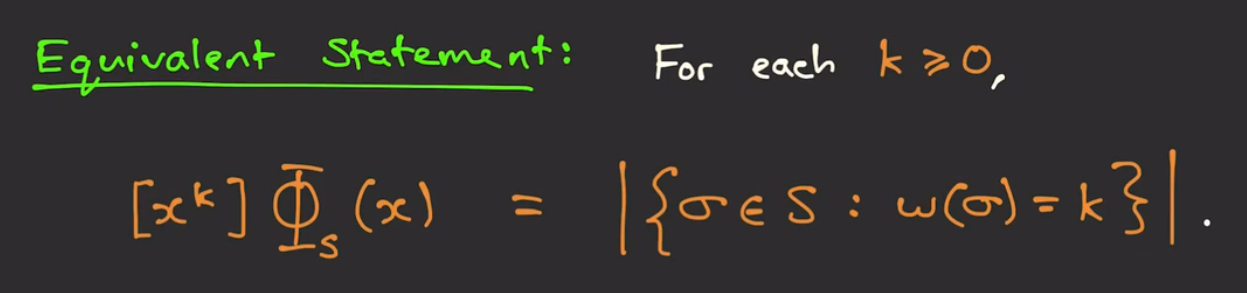 Equivalent Statement: For each k ⩾ 0,
[x^k] Φ_S (x) = |{σ ∈ S : w(σ) = k}|.